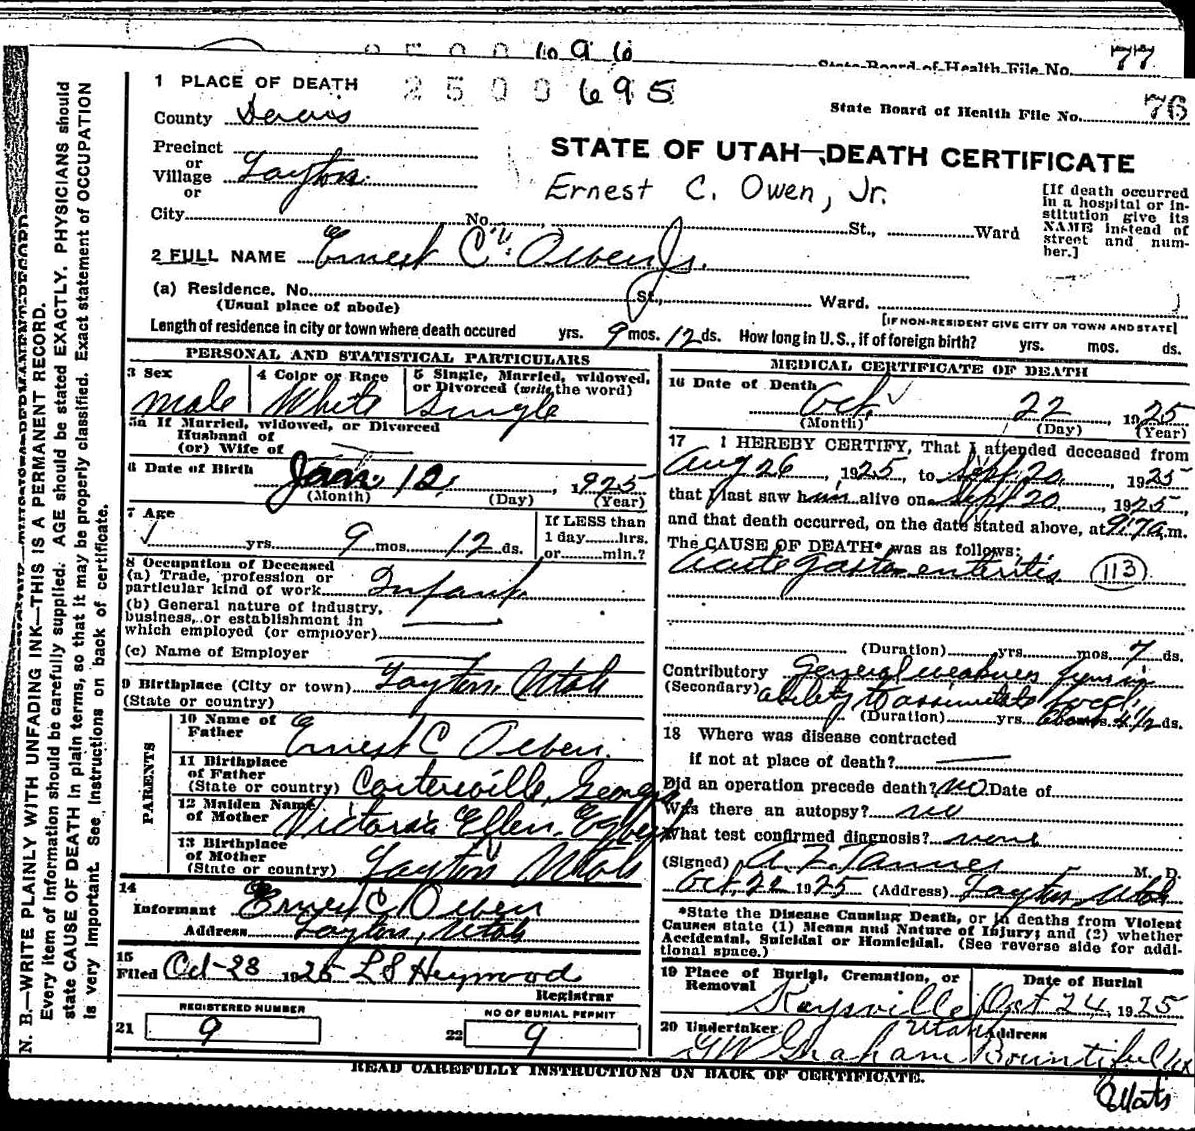 2500 696
State Board of Health File No. 77
1 PLACE OF DEATH
2500 695
State Board of Health File No. 76
County Davis
STATE OF UTAH—DEATH CERTIFICATE
Precinct
or
Village Layton
or
Ernest C. Owen, Jr.
[If death occurred in a hospital or institution give its NAME instead of street and number.]
City No. St., Ward
2 FULL NAME Ernest C. Owen Jr.
(a) Residence. No. St., Ward.
(Usual place of abode)
[IF NON-RESIDENT GIVE CITY OR TOWN AND STATE]
Length of residence in city or town where death occured yrs. 9 mos. 12 ds. How long in U. S., if of foreign birth? yrs. mos. ds.
PERSONAL AND STATISTICAL PARTICULARS
3 Sex male
4 Color or Race White
5 Single, Married, widowed, or Divorced (write the word) Single
5a If Married, widowed, or Divorced
Husband of
(or) Wife of
6 Date of Birth Jan. 12, 1925
(Month) (Day) (Year)
7 Age
yrs. 9 mos. 12 ds.
If LESS than
1 day hrs.
or min.?
8 Occupation of Deceased
(a) Trade, profession or
particular kind of work Infant
(b) General nature of Industry,
business, or establishment in
which employed (or employer)
(c) Name of Employer
9 Birthplace (City or town) Layton, Utah
(State or country)
PARENTS
10 Name of
Father Ernest C Owen
11 Birthplace
of Father
(State or country) Cartersville, Georgia
12 Maiden Name
of Mother Victoria Ellen
13 Birthplace
of Mother
(State or country) Layton Utah
14
Informant Ernest C Owen
Address Layton, Utah
15
Filed Oct-23 1925 L S Heywood
Registrar
REGISTERED NUMBER
21 9
NO OF BURIAL PERMIT
22 9
MEDICAL CERTIFICATE OF DEATH
16 Date of Death
Oct. 22, 1925
(Month) (Day) (Year)
17 I HEREBY CERTIFY, That I attended deceased from
Aug 26, 1925, to Sept 20, 1925
that I last saw him alive on Sept 20, 1925,
and that death occurred, on the date stated above, at m.
The CAUSE OF DEATH* was as follows:
acute gastro enteritis 113
(Duration) yrs. mos. 7 ds.
Contributory General weakness
(Secondary) ability to assimilate food
(Duration) yrs. ds.
18 Where was disease contracted
if not at place of death?
Did an operation precede death? no Date of
Was there an autopsy? no
What test confirmed diagnosis? none
(Signed) A Z Tanner M. D.
Oct. 22 1925 (Address) Layton Utah
*State the Disease Causing Death, or in deaths from Violent
Causes state (1) Means and Nature of Injury; and (2) whether
Accidental, Suicidal or Homicidal. (See reverse side for addi-
tional space.)
19 Place of Burial, Cremation, or
Removal Kaysville Utah
Date of Burial
Oct 24, 1925
20 Undertaker
GW Graham
Address
Bountiful
Utah
READ CAREFULLY INSTRUCTIONS ON BACK OF CERTIFICATE.
N. B.—WRITE PLAINLY WITH UNFADING INK—THIS IS A PERMANENT RECORD.
Every item of information should be carefully supplied. AGE should be stated EXACTLY. PHYSICIANS should
state CAUSE OF DEATH in plain terms, so that it may be properly classified. Exact statement of OCCUPATION
is very important. See instructions on back of certificate.